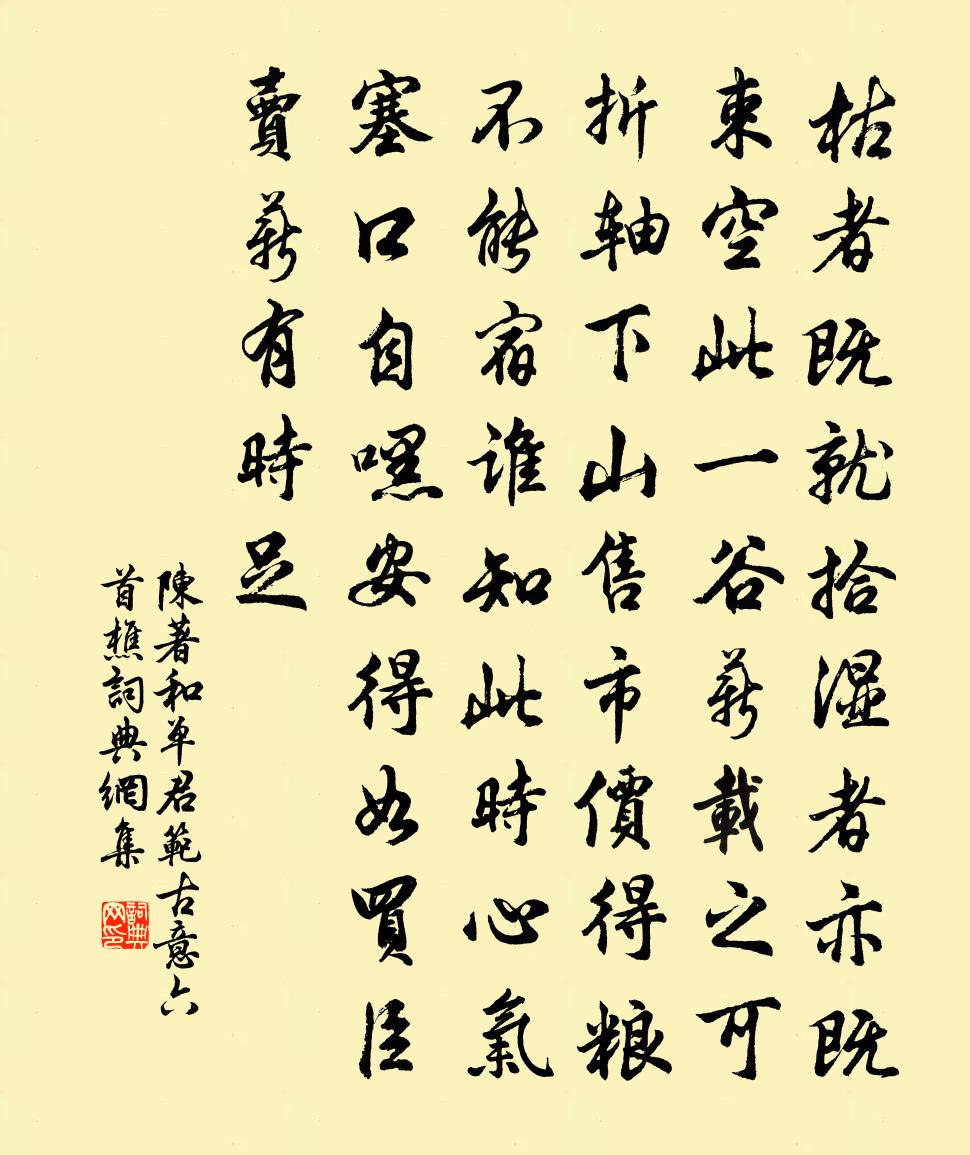 枯者既就拾湿者亦既
束空此一谷薪載之可
折轴下山售市價得粮
不能宿谁知此時心氣
塞口自嘿安得如買臣
賣薪有時足
陳著和单君範古意六
首樵詞典網集
詞典
网印